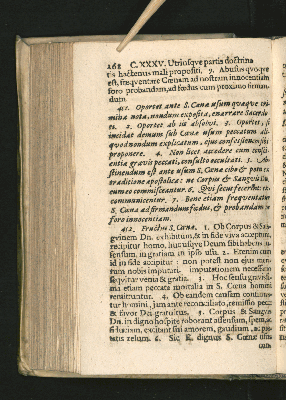 168 C. XXXV. Utriusque partis doctrina
tis hactenus mali propositi. 7. Abusus quoque
est, frequentare Cœnam ad nostram innocentiam
foro probandam, ad fœdus cum proximo firman-
dum.
411. Oportet ante S. Cœnæ usum quæque cri-
mina nota, nondum exposita, enarrare Sacerdo-
ti. 2. Oportet ab iis absolvi. 3. Oportet, si
incidat demum sub Cœnæ usum peccatum ali-
quod nondum explicatum, ejus confessionem sibi
proponere. 4. Non licet accedere cum consci-
entia gravis peccati, consulto occultati. 5. Ab-
stinendum est ante usum S. Cœnæ cibo & potu ex
traditione apostolica: ne Corpus & Sanguis Dn.
cum eo commisceantur. 6. Qui secus fecerint: ex-
communicentur. 7. Bene etiam frequentatur
S. Cœna ad firmandum fœdus, & probandam in
foro innocentiam.
412. Fructus S. Cœna. 1. Ob Corpus & San-
gvinem Dn. exhibitum, & in fide viva acceptum,
recipitur homo, hucusque Deum sibi habens in-
fensum, in gratiam ex ipso usu. 2. Etenim cum
id in fide accipitur: non potest non ejus meri-
tum nobis imputari: imputationem necessario
sequitur venia & gratia. 3. Hoc sensu gravissi-
ma etiam peccata mortalia in S. Cœna homini
remittuntur. 4. Ob eandem censum continua-
tur homini, jam ante reconciliato, remissio pecc.
& favor Dei gratuitus. 5. Corpus & Sangvis
Dn. in digno hospite roborant assensum, spem, &
fiduciam, excitant sui amorem, gaudium, ac pie-
tatis zelum. 6. Sic E. dignus S. Cœnæ usus
cum